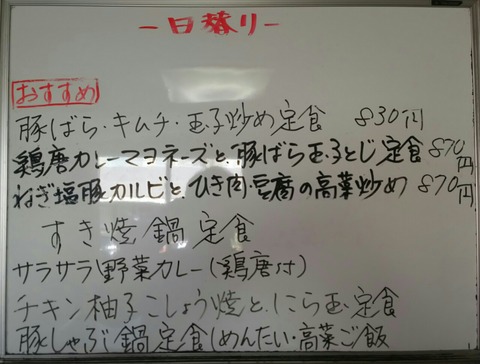 －日替り－
おすすめ
豚ばら・キムチ・玉子炒め定食 830円
鶏唐カレーマヨネーズと、豚ばら玉子とじ定食 870円
ねぎ塩豚カルビと、ひき肉・豆腐の高菜炒め 870円
すき焼鍋定食
サラサラ野菜カレー(鶏唐付)
チキン柚子こしょう焼と、にら玉定食
豚しゃぶ鍋定食(めんたい・高菜ご飯